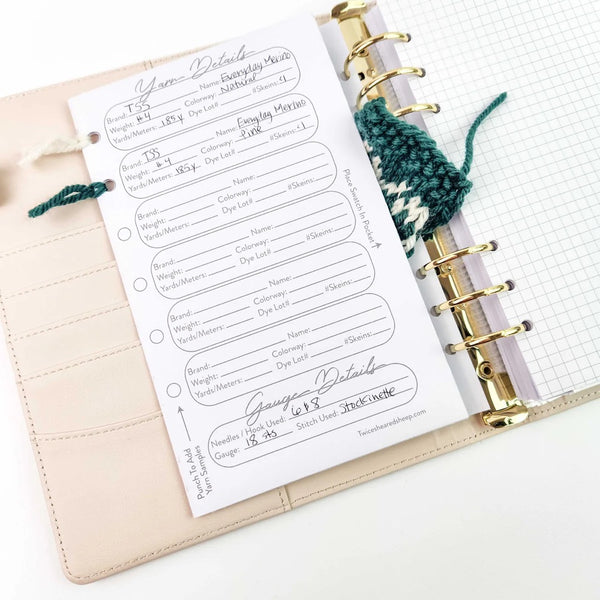 Yarn Details
Brand: TSS Name: Everyday Merino
Weight: #4 Colorway: Natural
Yards/Meters: 185y Dye Lot# #Skeins: 1
Brand: TSS Name: Everyday Merino
Weight: #4 Colorway: Pine
Yards/Meters: 185y Dye Lot# #Skeins: 1
Brand: Name:
Weight: Colorway:
Yards/Meters: Dye Lot# #Skeins:
Brand: Name:
Weight: Colorway:
Yards/Meters: Dye Lot# #Skeins:
Brand: Name:
Weight: Colorway:
Yards/Meters: Dye Lot# #Skeins:
Brand: Name:
Weight: Colorway:
Yards/Meters: Dye Lot# #Skeins:
Place Swatch In Pocket
Gauge Details
Needles / Hook Used: 6 & 8
Gauge: 18 sts Stitch Used: Stockinette
Punch To Add
Yarn Samples
Twiceshearedsheep.com